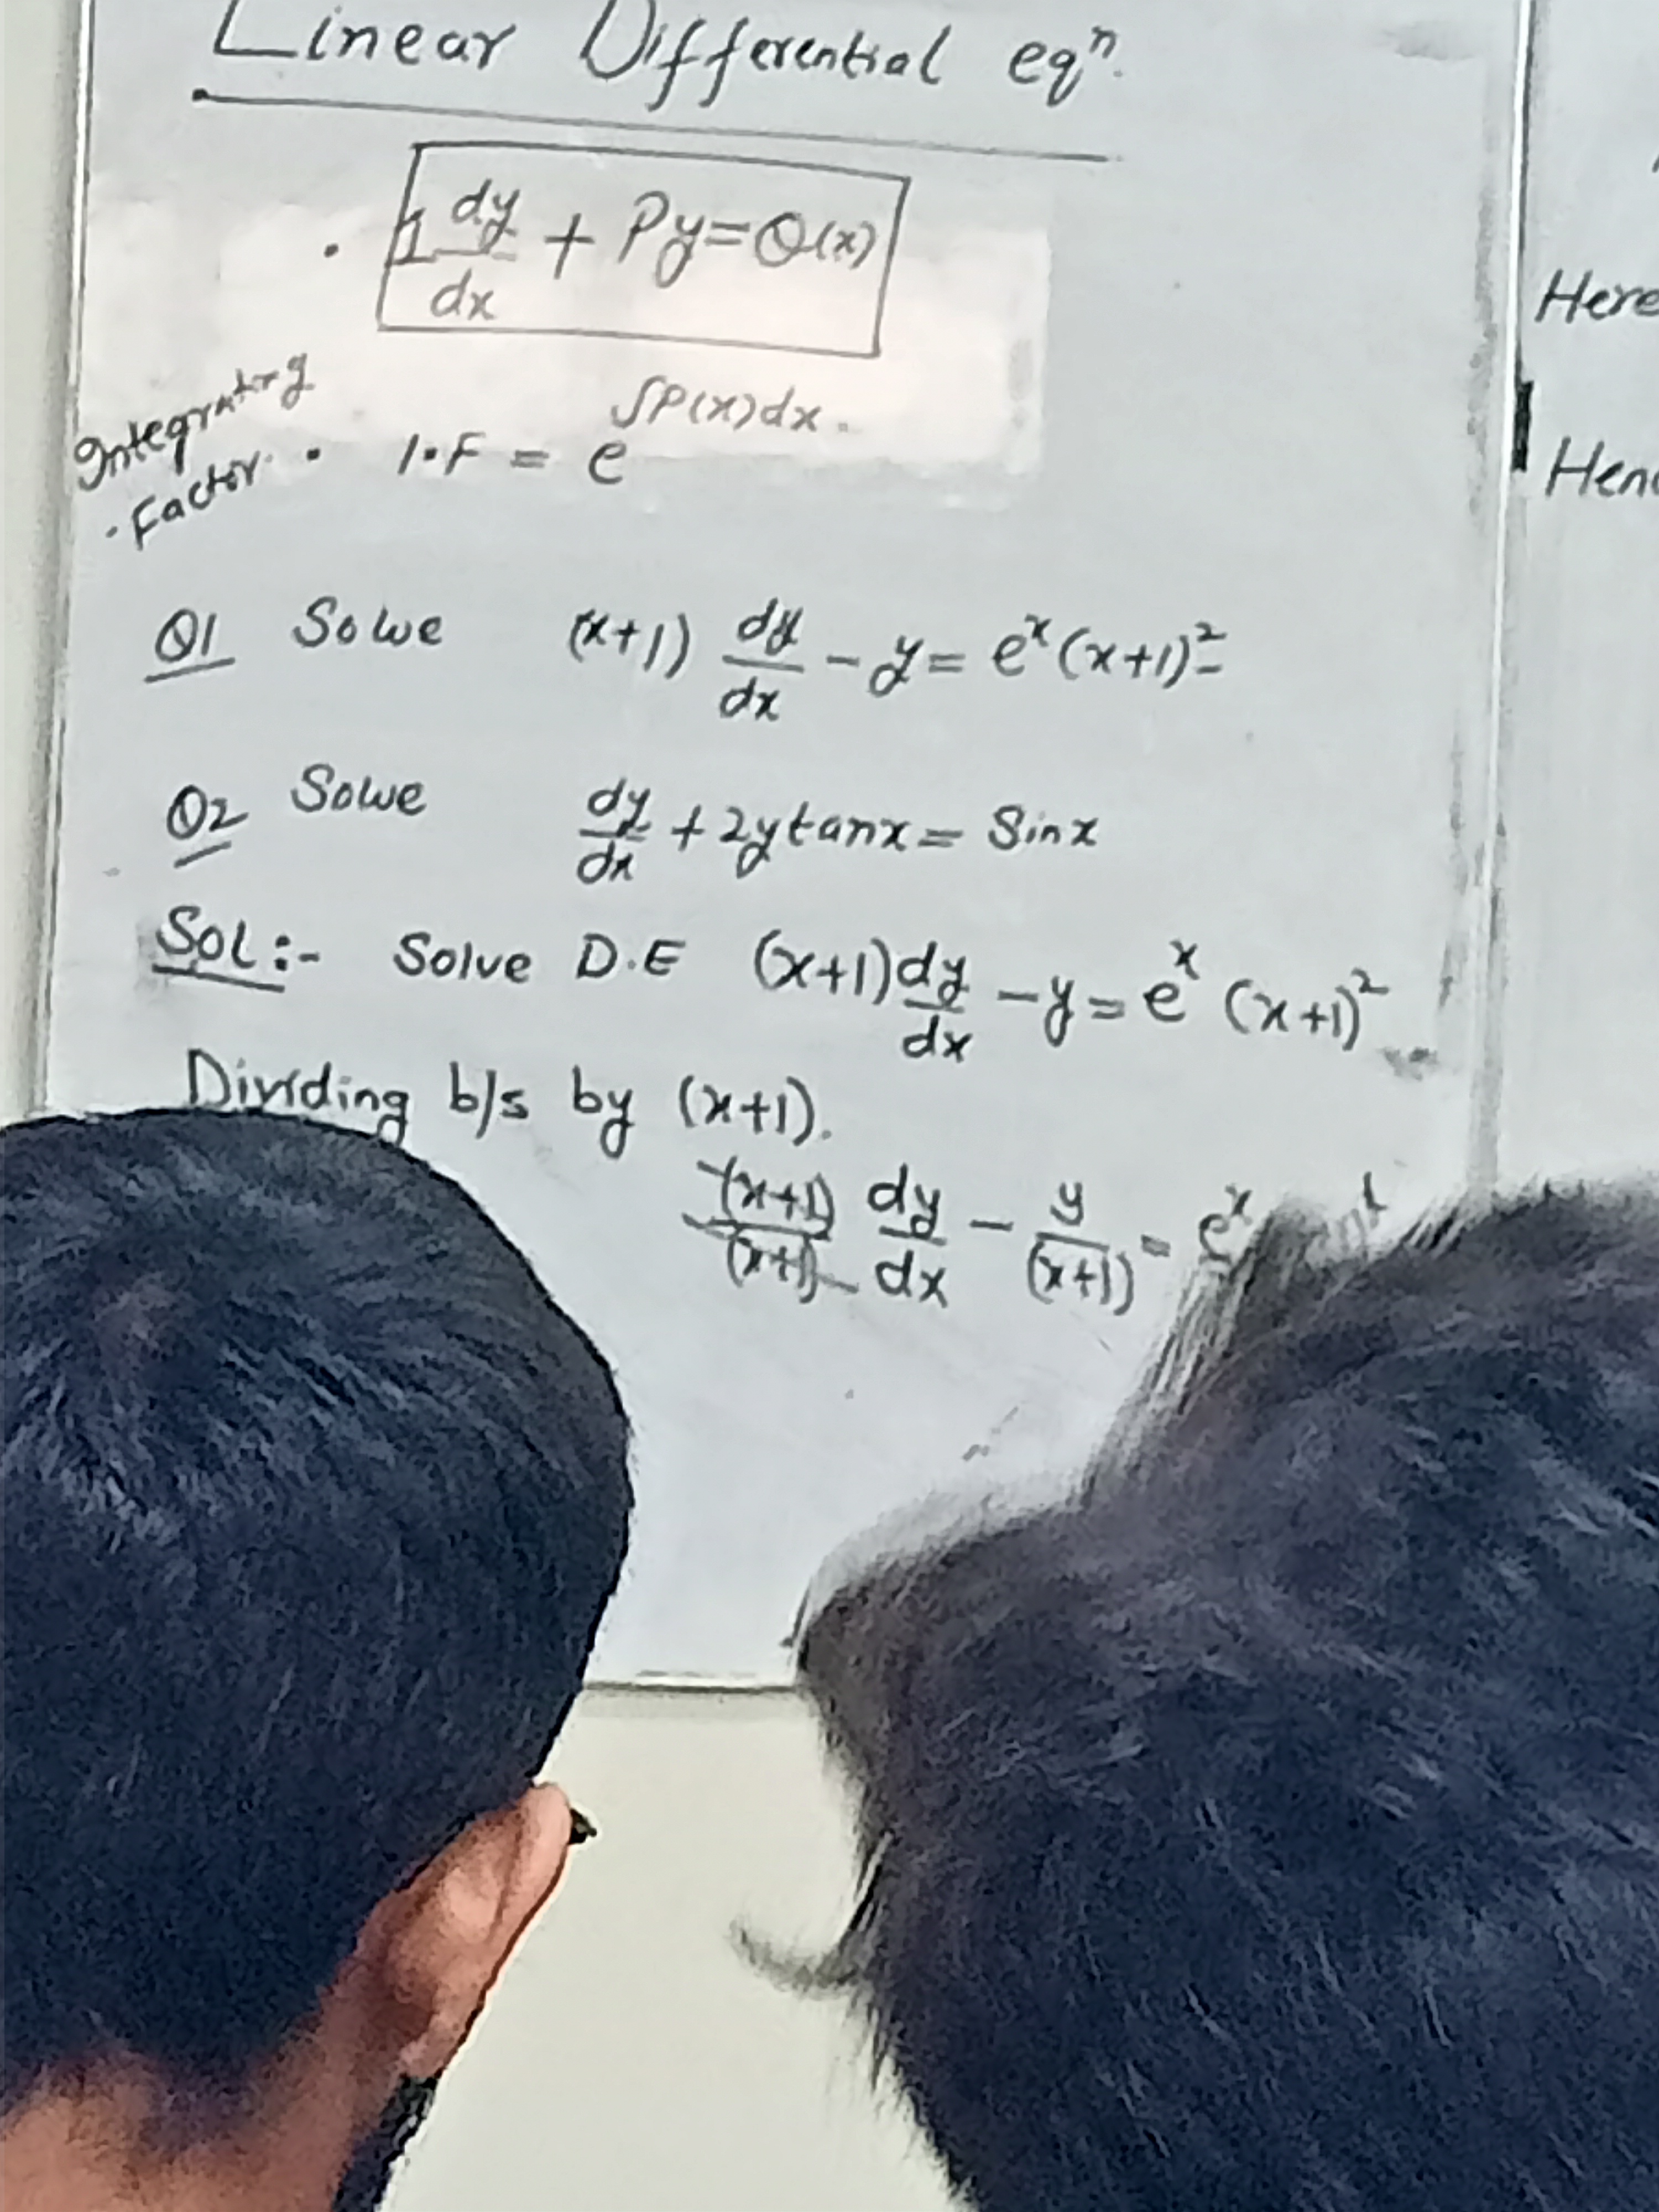 Linear Differential eqⁿ.
• 1 dy/dx + Py = Q(x)
Integrating
• Factor • I.F = e^∫P(x)dx.
Q1 Solve (x+1) dy/dx - y = eˣ(x+1)²
Q2 Solve dy/dx + 2y tanx = Sinx
SOL:- Solve D.E (x+1) dy/dx - y = eˣ (x+1)²
Dividing b/s by (x+1).
(x+1)/(x+1) dy/dx - y/(x+1) = eˣ
Here